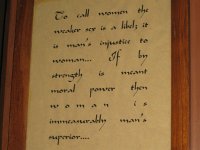 To call women the
weaker sex is a libel; it
is man's injustice to
woman... If by
strength is meant
moral power then
woman is
immeasurably man's
superior....